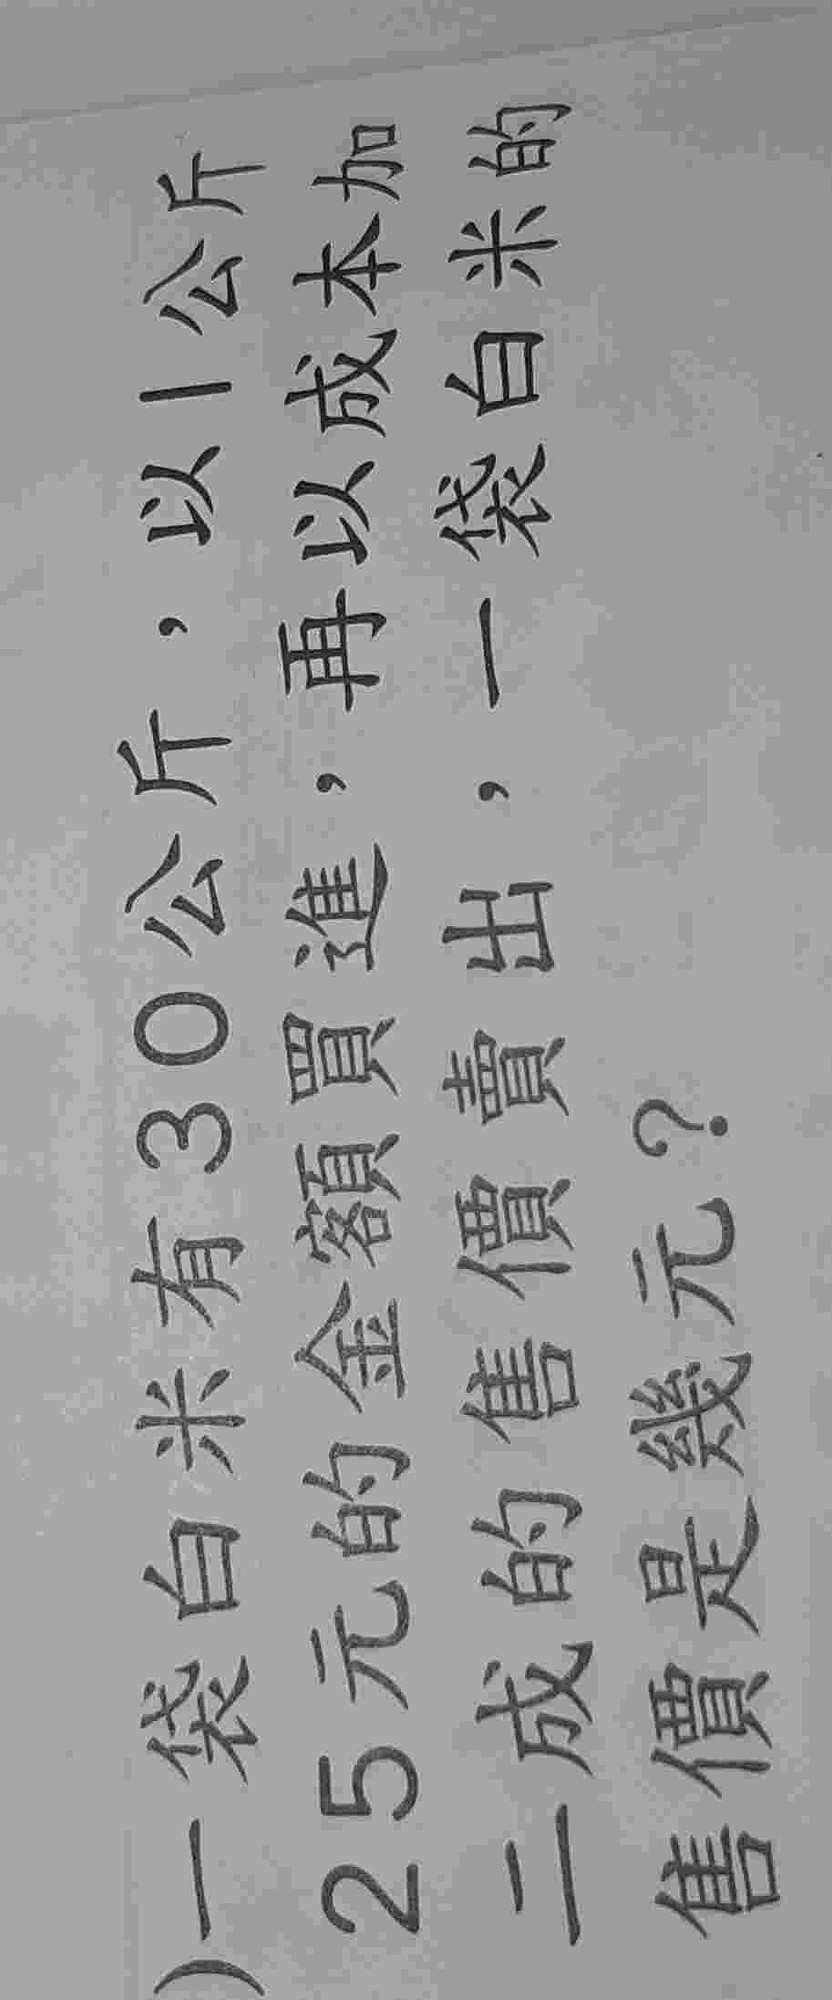 )一袋白米有30公斤，以1公斤
25元的金額買進，再以成本加
二成的售價賣出，一袋白米的
售價是幾元？